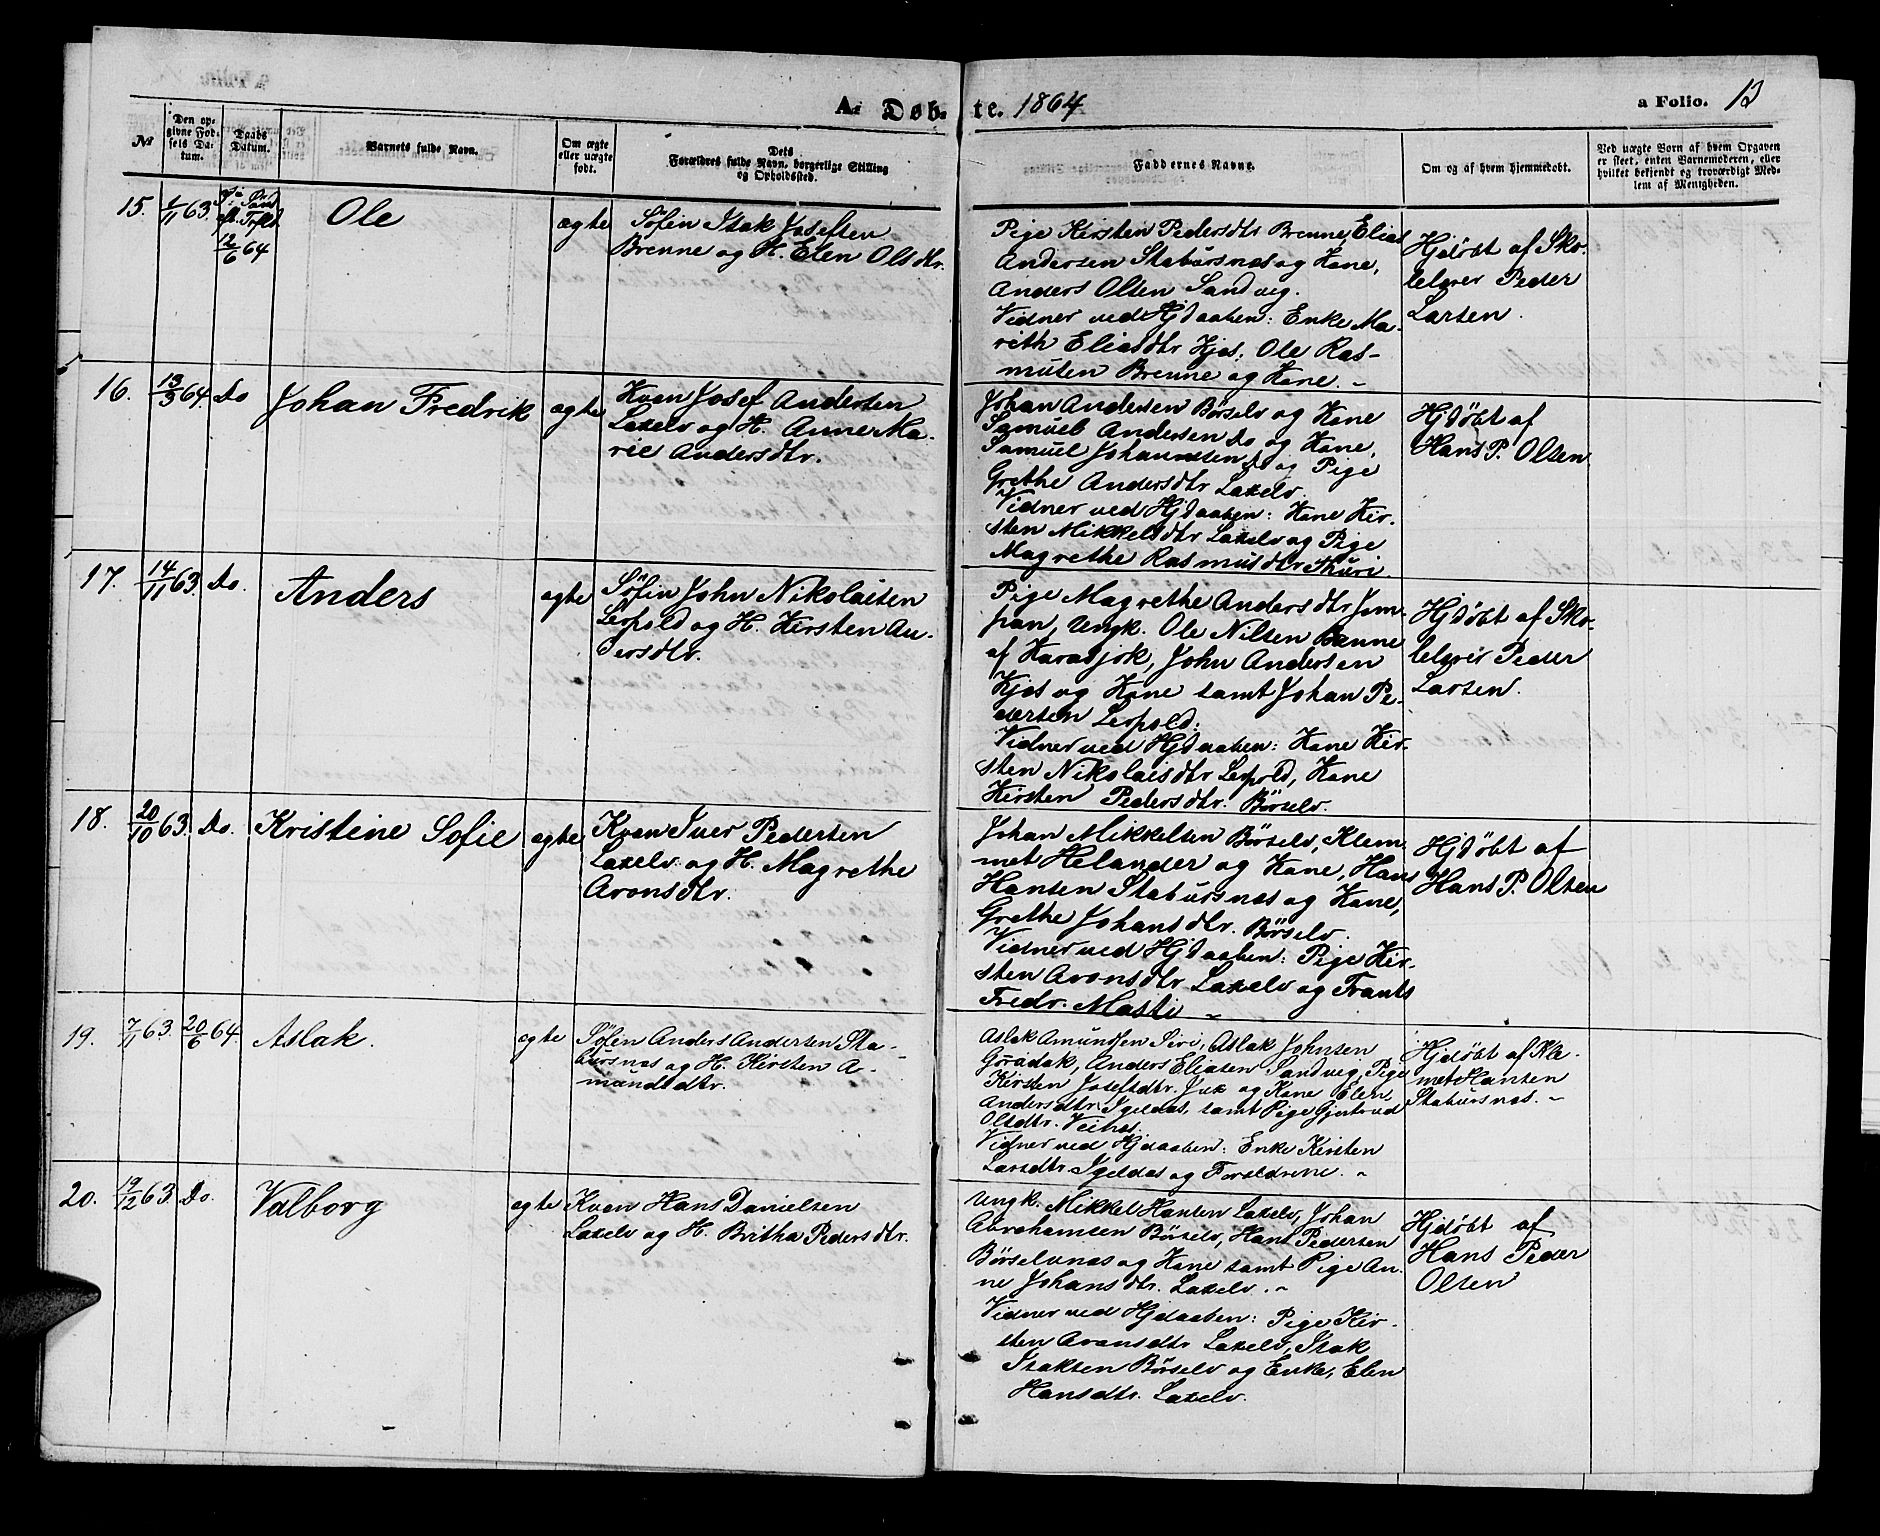 A. Døb- te. 1864 a Folio. 13
№
Den op-
givne Fød-
sels Da-
tum.
Daabs
Datum.
Barnets fulde Navn.
Om ægte
eller uægte
født.
Dets
Forældres fulde Navn, borgerlige Stilling
og Opholdssted.
Faddernes Navne.
Om og af hvem hjemmedøbt.
Ved uægte Børn af hvem Opgaven
er skeet, enten Barnemoderen, eller
hvilket bekjendt og troværdigt Med-
lem af Menigheden.
15. 1/11 63.
12/6 64
Ole
ægte
Søfin Isak Josefsen
Brenne og H. Elen Olsdtr.
Pige Kirsten Pedersdtr Brenne, Elias
Andersen Stabursnæs og Kone,
Anders Olsen Sandvig.
Vidner ved Hjdaaben: Enke Ma-
reth Eliasdtr Kjæs, Ole Ras-
musen Brenne og Kone. -
Hjdøbt af Sko-
lelærer Peder
Larsen.
16. 13/3 64. Do
Johan Fredrik
ægte
Kvæn Josef Andersen
Laxelv og H. Anne Ma-
rie Andersdtr.
Johan Andersen Børselv og Kone
Samuel Andersen Do og Kone,
Samuel Johannesen Do og Pige
Grethe Andersdtr Laxelv.
Vidner ved Hjdaaben: Kone Kir-
sten Mikkelsdtr Laxelv og Pige
Magrethe Rasmusdtr Thuri.
Hjdøbt af
Hans P. Olsen.
17. 14/11 63. Do.
Anders
ægte
Søfin John Nikolaisen
Leipold og H. Kirsten An-
dersdtr.
Pige Magrethe Andersdtr Jom-
pan, Ungk. Ole Nilsen Banne
af Karasjok, John Andersen
Kjæs og Kone samt Johan Pe-
dersen Leipold.
Vidner ved Hjdaaben: Kone Kir-
sten Nikolaisdtr Leipold, Kone
Kirsten Pedersdtr. Børselv.
Hjdøbt af Sko-
lelærer Peder
Larsen.
18. 20/10 63. Do.
Kristine Sofie
ægte
Kvæn Iver Pedersen
Laxelv og H. Magrethe
Aronsdtr.
Johan Mikkelsen Børselv, Klem-
met Helander og Kone, Hans
Hansen Stabursnæs og Kone,
Grethe Johansdtr. Børselv.
Vidner ved Hjdaaben: Pige Kir-
sten Aronsdtr Laxelv og Frants
Fredr. Masti -
Hjdøbt af
Hans P. Olsen
19. 7/11 63. 20/6 64.
Aslak.
ægte
Søfin Anders Andersen Sta-
bursnæs og H. Kirsten A-
mundsdtr.
Aslak Amundsen Siri, Aslak Johnsen
Goradak, Anders Eliasen Sandvig, Pige
Kirsten Josefsdtr. Jux og Kone Elen
Andersdtr. Igeldas, samt Pige Gjertrud
Olsdtr. Veines.
Vidner ved Hjdaaben: Enke Kirsten
Larsdtr Igeldas og Forældrene. -
Hjdøbt af Kle-
met Hansen
Stabursnæs. -
20. 19/12 63. Do.
Valborg
ægte
Kvæn Hans Danielsen
Laxelv og H. Britha Pedersdtr.
Ungk. Mikkel Hansen Laxelv, Johan
Abrahamsen Børselv, Hans Pedersen
Børselvnæs og Kone samt Pige An-
ne Johansdtr. Laxelv. -
Vidner ved Hjdaaben: Pige Kir-
sten Aronsdtr Laxelv, Isak
Isaksen Børselv og Enke, Elen
Hansdtr. Laxelv.
Hjdøbt af
Hans Peder
Olsen